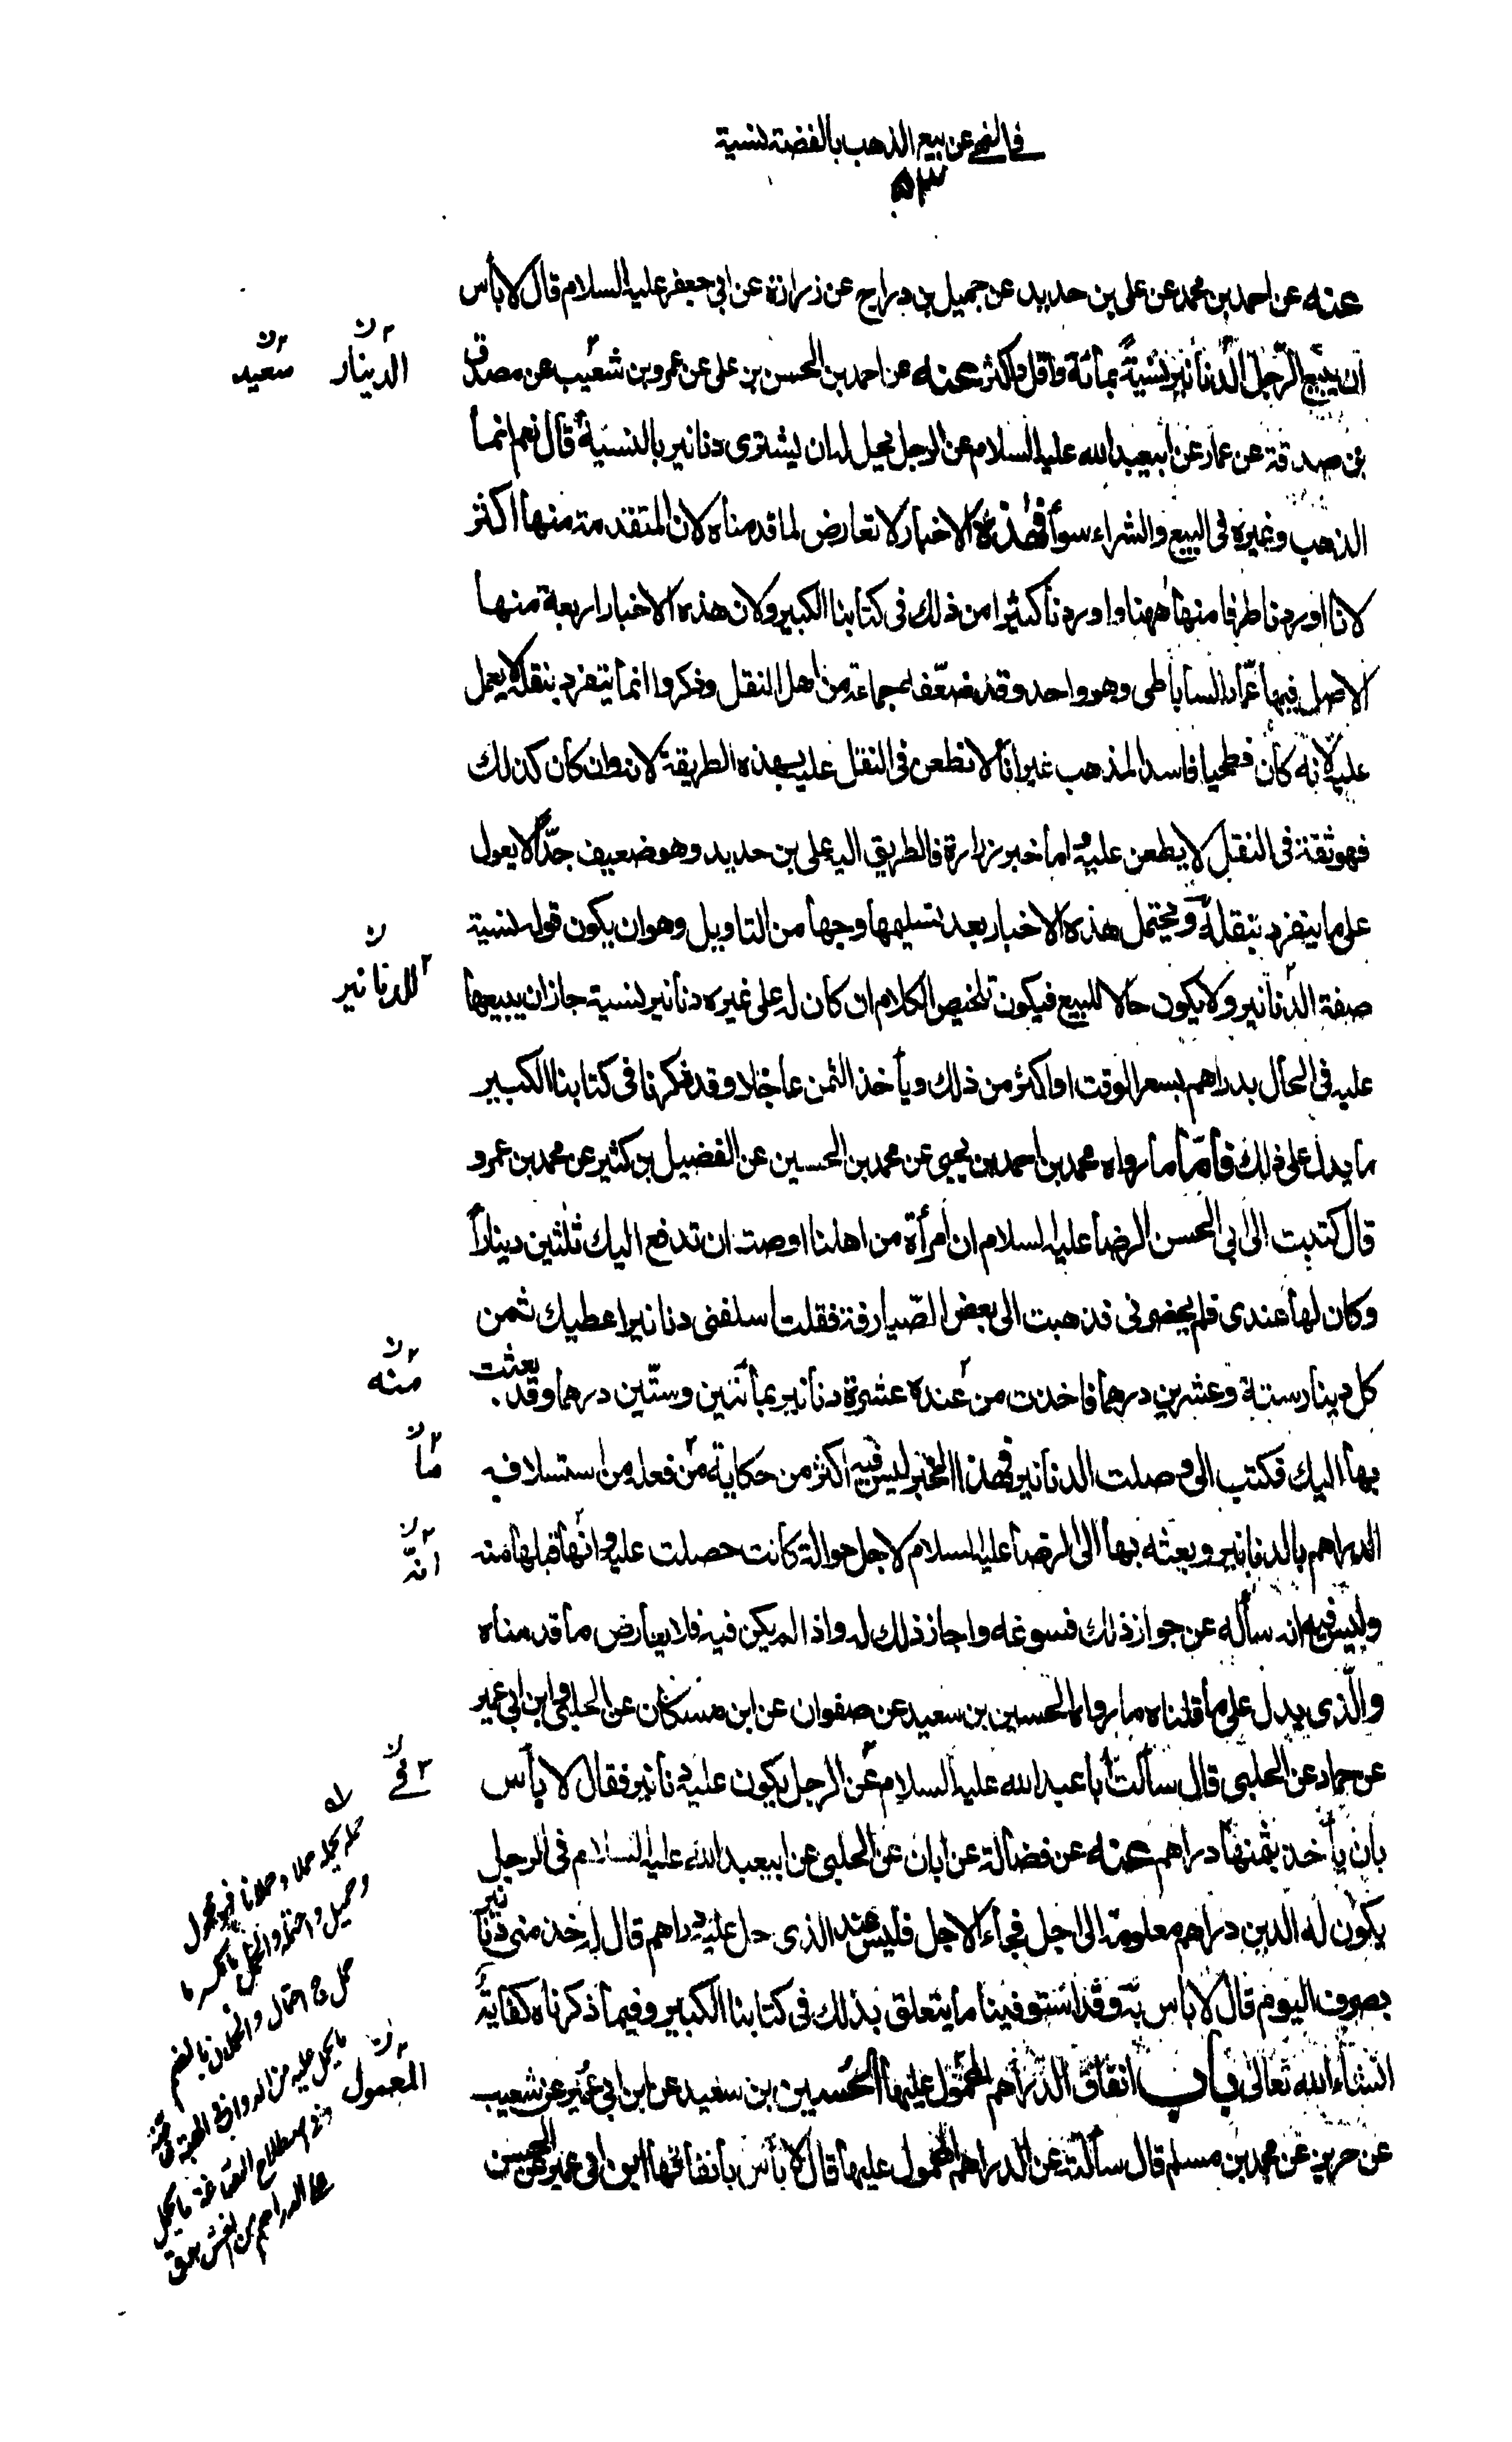 في النهي عن بيع الذهب بالفضة نسية
۵۳
عنه عن احمد بن محمد عن علي بن حديد عن جميل بن دراج عن زرارة عن ابي جعفر عليه السلام قال لا بأس
ان يبيع الرجل الدنانير نسية بمائة واقل واكثر عنه عن احمد بن الحسن بن علي عن عمرو بن شعيب عن مصدق
الدينار
سعيد
بن صدقة عن عمار عن ابيعبد الله عليه السلام عن الرجل يحل له ان يشتري دنانير بالنسية قال نعم انما
الذهب وغيره في البيع والشراء سواء فهذه الاخبار لا تعارض لما قدمناه لان المتقدمة منها اكثر
لانا اوردنا طرفا منها ههنا واوردنا كثيرا من ذلك في كتابنا الكبير ولان هذه الاخبار اربعة منها
الاصل فيها عمار الساباطي وهو واحد وقد ضعّفه جماعة من اهل النقل وذكروا انما يتفرد بنقله لا يعمل
عليه لانه كان فطحيا فاسد المذهب غير انا لا نطعن في النقل عليه بهذه الطريقة لانه وان كان كذلك
فهو ثقة في النقل لا يطعن عليه اما خبر زرارة فالطريق اليه علي بن حديد وهو ضعيف جدّا لا يعول
على ما يتفرد بنقله ويحتمل هذه الاخبار بعد تسليمها وجها من التاويل وهو ان يكون قوله نسية
صفة الدنانير ولا يكون حالا للبيع فيكون تلخيص الكلام ان كان له على غيره دنانير نسية جاز ان يبيعها
للدنانير
عليه في الحال بدراهم بسعر الوقت او اكثر من ذلك ويأخذ الثمن عاجلا وقد ذكرنا في كتابنا الكبير
ما يدل على ذلك فأمّا ما رواه محمد بن احمد بن يحيى عن محمد بن الحسين عن الفضيل بن كثير عن محمد بن عمرو
قال كتبت الى ابي الحسن الرضا عليه السلام ان امرأة من اهلنا اوصت ان تدفع اليك ثلثين دينارا
وكان لها عندي فلم يحضرني فذهبت الى بعض الصّيارفة فقلت اسلفني دنانير اعطيك ثمن
كل دينار ستة وعشرين درهما فاخذت من عنده عشرة دنانير بمأتين وستّين درهما وقد بعثت
منه
بها اليك فكتب الي وصلت الدنانير فهذا الخبر ليس فيه اكثر من حكاية من فعله من استسلاف
ما
الدراهم بالدنانير وبعثه بها الى الرضا عليه السلام لاجل حوالة كانت حصلت عليه وانها قبلها منه
انّه
وليس فيه انه سأله عن جواز ذلك فسوغه واجاز ذلك له واذا لم يكن فيه فلا يعارض ما قدمناه
والّذي يدل على ما قلناه ما رواه الحسين بن سعيد عن صفوان عن ابن مسكان عن الحلبي وابن ابي عمير
عن حماد عن الحلبي قال سألت أبا عبد الله عليه السلام عن الرجل يكون عليه دنانير فقال لا بأس
في
بان يأخذ بثمنها دراهم عنه عن فضالة عن ابان عن الحلبي عن ابيعبد الله عليه السلام في الرجل
يكون له الدين دراهم معلومة الى اجل فجاء الاجل فليس عند الذي حل عليه دراهم قال له خذ مني دنانير
بصرف اليوم قال لا باس به وقد استوفينا ما يتعلق بذلك في كتابنا الكبير وفيما ذكرناه كفاية
انشاء الله تعالى باب انفاق الدراهم المحمول عليها الحسين بن سعيد عن ابن ابي عمير عن شعيب
المعمول
عن حريز عن محمد بن مسلم قال سألته عن الدراهم المحمول عليها قال لا بأس بانفاقها ابن ابي عمير عن الحسن
حمله يحمله حملا وحملانا فهو محمول
وحميل واحتمله والحمل بالكسر ما
حمل ج احمال والحملان بالضم
ما يحمل عليه من الدواب في الهبة
وفي اصطلاح الصاغة ما يحمل
على الدراهم من الغش ق